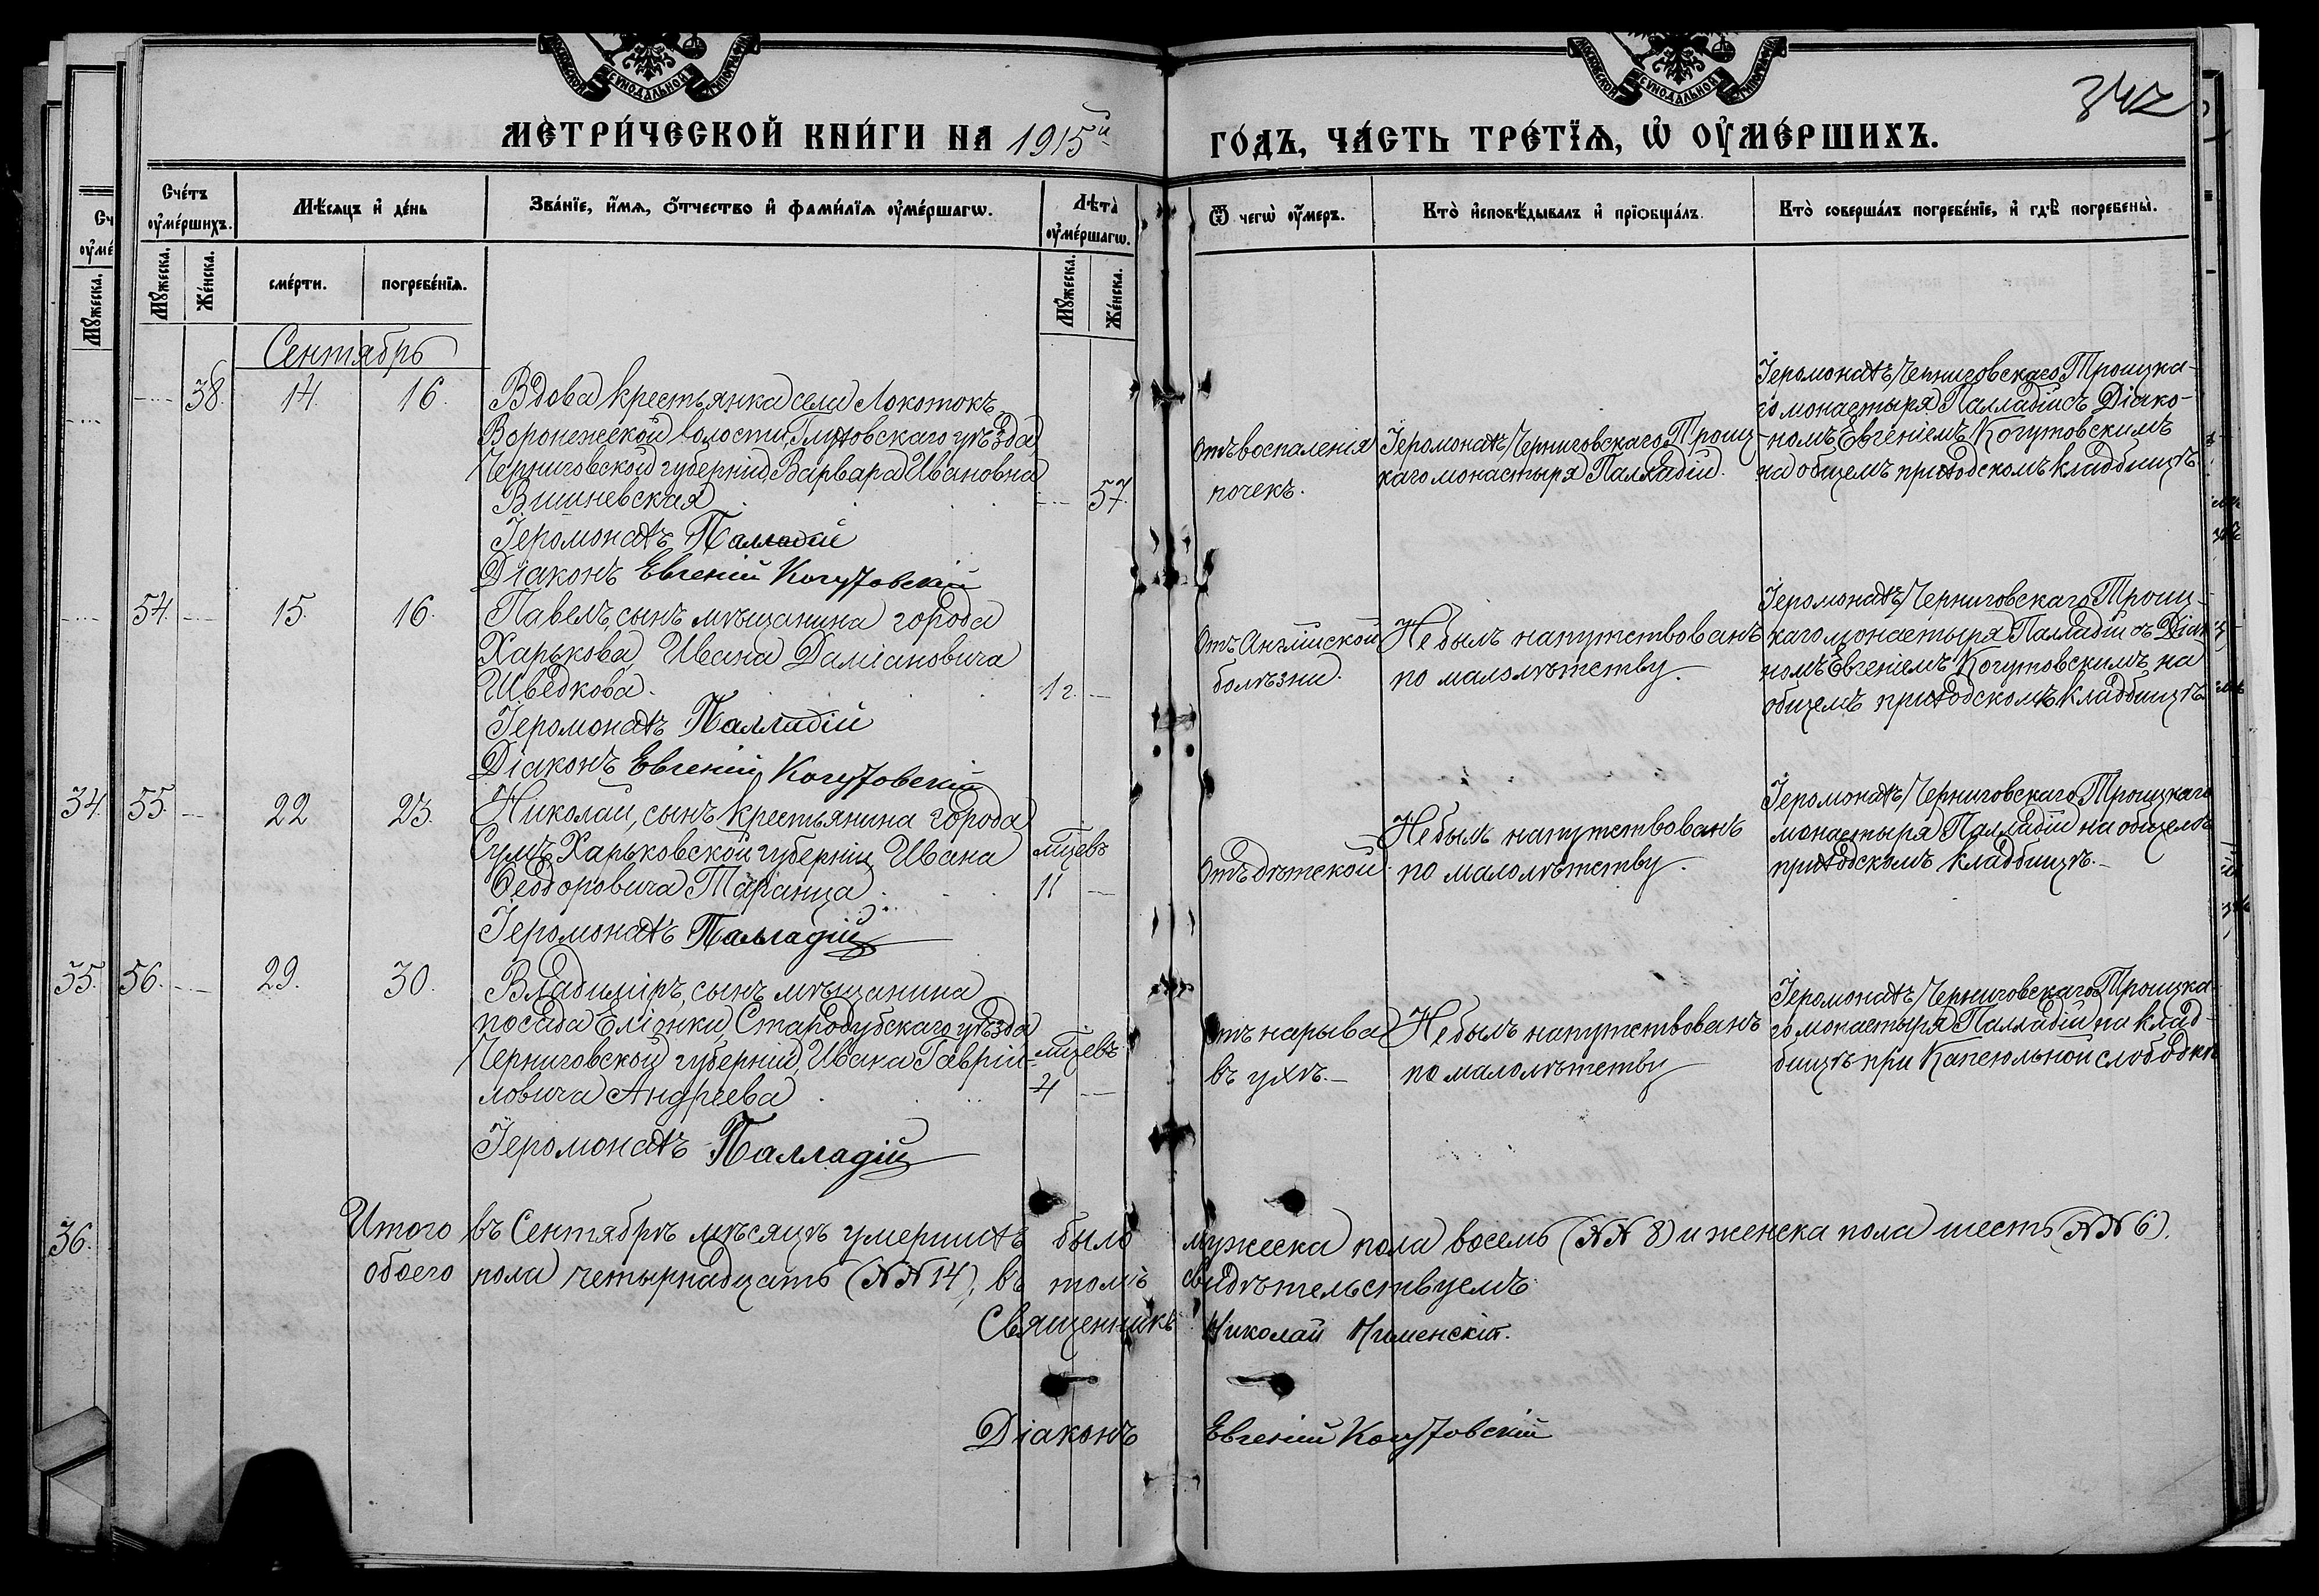 МЕТРИ́ЧЕСКОЙ КНИ́ГИ НА 1915й ГО́ДЪ, ЧА́СТЬ ТРЕ́ТЇѦ, Ѡ҆ ОУ҆МЕ́РШИХЪ.
342
Сче́тъ оу҆ме́ршихъ.
Мѣ́сѧцъ и҆ де́нь
Зва́нїе, и҆́мѧ, ѻ҆́тчество и҆ фами́лїѧ оу҆ме́ршагѡ.
Лѣта̀ оу҆ме́ршагѡ.
Ѿ чегѡ̀ оу҆́меръ.
Кто̀ и҆сповѣ́дывалъ и҆ прїѻбща́лъ.
Кто̀ соверша́лъ погребе́нїе, и҆ гдѣ̀ погребены̀.
Мꙋ́жеска.
Же́нска.
сме́рти.
погребе́нїѧ.
Мꙋ́жеска.
Же́нска.
Сентябрь
38. 14. 16.
Вдова крестьянка села Локотокъ,
Воронежской волости, Глуховскаго уѣзда,
Черниговской губерніи, Варвара Ивановна
Вишневская
57.
Іеромонахъ Палладій
Діаконъ Евгеній Когутовскій
Отъ воспаленія
почекъ.
Іеромонахъ Черниговскаго Троиц-
каго монастыря Палладій.
Іеромонахъ Черниговскаго Троицка-
го монастыря Палладій съ Діако-
номъ Евгеніемъ Когутовскимъ
на общемъ приходскомъ кладбищѣ
54. 15. 16.
Павелъ, сынъ мѣщанина города
Харькова, Ивана Даміановича
Шведкова.
1 г.
Іеромонахъ Палладій
Діаконъ Евгеній Когутовскій
Отъ Англійской
болѣзни.
Не былъ напутствованъ
по малолѣтству.
Іеромонахъ Черниговскаго Троиц-
каго монастыря Палладій съ Діако
номъ Евгеніемъ Когутовскимъ на
общемъ приходскомъ кладбищѣ
34. 55. 22 23.
Николай, сынъ крестьянина города
Сумъ Харьковской губерніи Ивана
Ѳеодоровича Таранца
мцевъ
11
Іеромонахъ Палладій
Отъ дѣтской
Не былъ напутствованъ
по малолѣтству.
Іеромонахъ Черниговскаго Троицкаго
монастыря Палладій на общемъ
приходскомъ кладбищѣ.
35. 56. 29. 30.
Владиміръ, сынъ мѣщанина
посада Еліонки, Стародубскаго уѣзда
Черниговской губерніи, Ивана Гавріи-
ловича Андреева
мцевъ
4
Іеромонахъ Палладій
Отъ нарыва
въ ухѣ.
Не былъ напутствованъ
по малолѣтству
Іеромонахъ Черниговскаго Троицка-
го монастыря Палладій на клад-
бищѣ при Капсюльной слободкѣ
36.
Итого въ Сентябрѣ мѣсяцѣ умершихъ было мужеска пола восемь (№№ 8) и женска пола шесть (№№ 6).
обоего пола четырнадцать (№№ 14), въ томъ свидѣтельствуемъ
Священникъ Николай
Діаконъ Евгеній Когутовскій